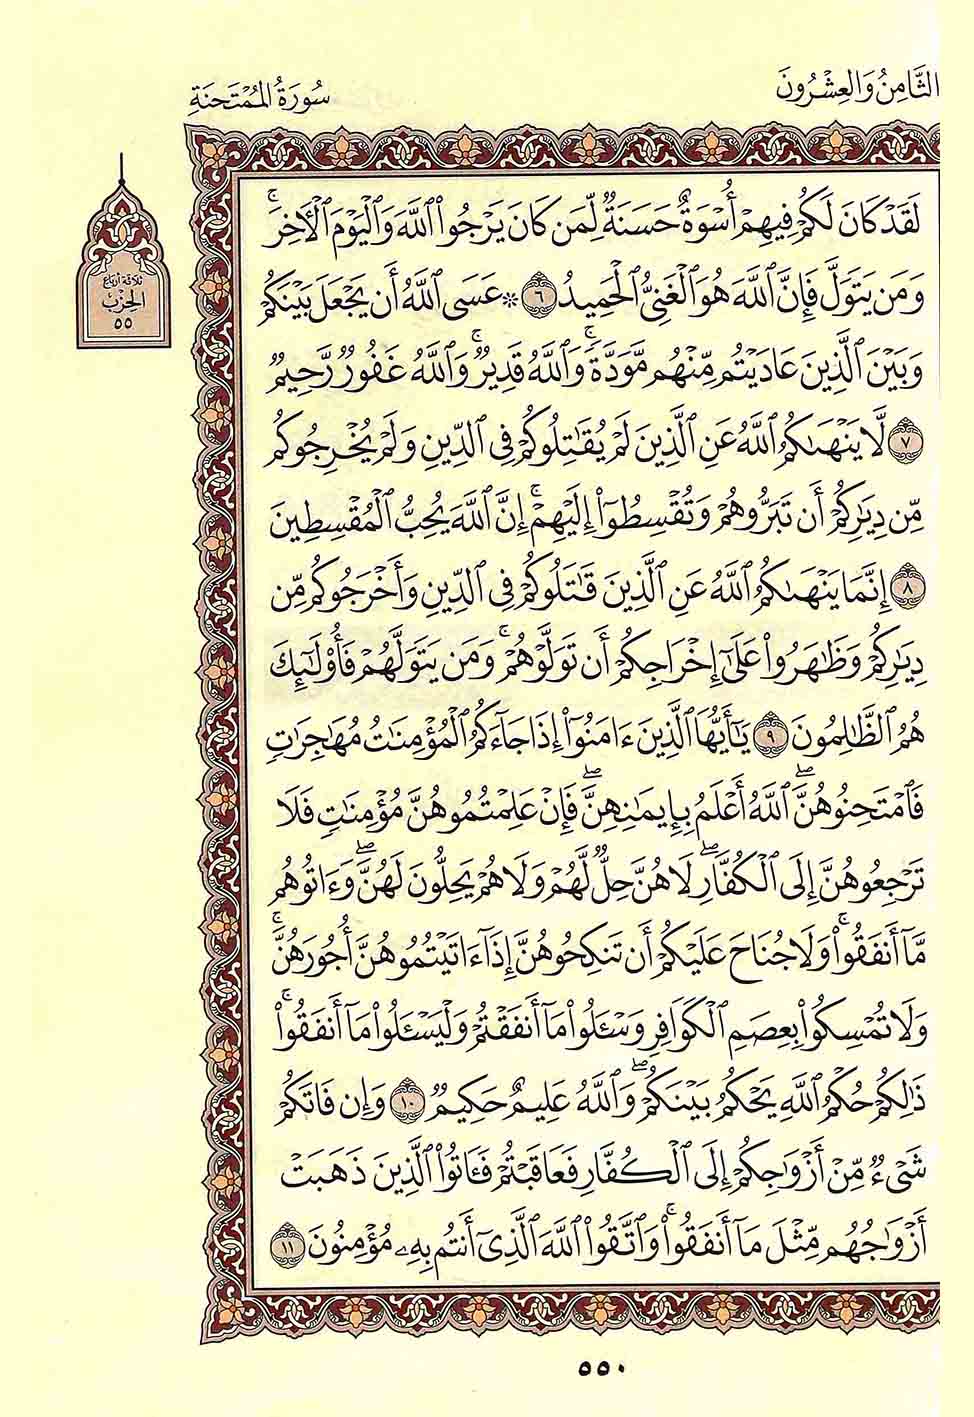 الثَّامِنُ وَالعِشْرُونَ
سُورَةُ المُمْتَحنَةِ
لَقَدْ كَانَ لَكُمْ فِيهِمْ أُسْوَةٌ حَسَنَةٌ لِّمَن كَانَ يَرْجُوا۟ ٱللَّهَ وَٱلْيَوْمَ ٱلْأَخِرَۚ
وَمَن يَتَوَلَّ فَإِنَّ ٱللَّهَ هُوَ ٱلْغَنِىُّ ٱلْحَمِيدُ ٦ ۞ عَسَى ٱللَّهُ أَن يَجْعَلَ بَيْنَكُمْ
وَبَيْنَ ٱلَّذِينَ عَادَيْتُم مِّنْهُم مَّوَدَّةًۚ وَٱللَّهُ قَدِيرٌۚ وَٱللَّهُ غَفُورٌ رَّحِيمٌ
٧ لَّا يَنْهَىٰكُمُ ٱللَّهُ عَنِ ٱلَّذِينَ لَمْ يُقَٰتِلُوكُمْ فِى ٱلدِّينِ وَلَمْ يُخْرِجُوكُم
مِّن دِيَٰرِكُمْ أَن تَبَرُّوهُمْ وَتُقْسِطُوٓا۟ إِلَيْهِمْۚ إِنَّ ٱللَّهَ يُحِبُّ ٱلْمُقْسِطِينَ
٨ إِنَّمَا يَنْهَىٰكُمُ ٱللَّهُ عَنِ ٱلَّذِينَ قَٰتَلُوكُمْ فِى ٱلدِّينِ وَأَخْرَجُوكُم مِّن
دِيَٰرِكُمْ وَظَٰهَرُوا۟ عَلَىٰٓ إِخْرَاجِكُمْ أَن تَوَلَّوْهُمْۚ وَمَن يَتَوَلَّهُمْ فَأُو۟لَٰٓئِكَ
هُمُ ٱلظَّٰلِمُونَ ٩ يَٰٓأَيُّهَا ٱلَّذِينَ ءَامَنُوٓا۟ إِذَا جَآءَكُمُ ٱلْمُؤْمِنَٰتُ مُهَٰجِرَٰتٍ
فَٱمْتَحِنُوهُنَّۖ ٱللَّهُ أَعْلَمُ بِإِيمَٰنِهِنَّۖ فَإِنْ عَلِمْتُمُوهُنَّ مُؤْمِنَٰتٍ فَلَا
تَرْجِعُوهُنَّ إِلَى ٱلْكُفَّارِۖ لَا هُنَّ حِلٌّ لَّهُمْ وَلَا هُمْ يَحِلُّونَ لَهُنَّۖ وَءَاتُوهُم
مَّآ أَنفَقُوا۟ۚ وَلَا جُنَاحَ عَلَيْكُمْ أَن تَنكِحُوهُنَّ إِذَآ ءَاتَيْتُمُوهُنَّ أُجُورَهُنَّۚ
وَلَا تُمْسِكُوا۟ بِعِصَمِ ٱلْكَوَافِرِ وَسْـَٔلُوا۟ مَآ أَنفَقْتُمْ وَلْيَسْـَٔلُوا۟ مَآ أَنفَقُوا۟ۚ
ذَٰلِكُمْ حُكْمُ ٱللَّهِ يَحْكُمُ بَيْنَكُمْۖ وَٱللَّهُ عَلِيمٌ حَكِيمٌ ١٠ وَإِن فَاتَكُمْ
شَىْءٌ مِّنْ أَزْوَٰجِكُمْ إِلَى ٱلْكُفَّارِ فَعَاقَبْتُمْ فَـَٔاتُوا۟ ٱلَّذِينَ ذَهَبَتْ
أَزْوَٰجُهُم مِّثْلَ مَآ أَنفَقُوا۟ۚ وَٱتَّقُوا۟ ٱللَّهَ ٱلَّذِىٓ أَنتُم بِهِۦ مُؤْمِنُونَ ١١
ثلاثة أرباع
الحِزْب
٥٥
٥٥٠